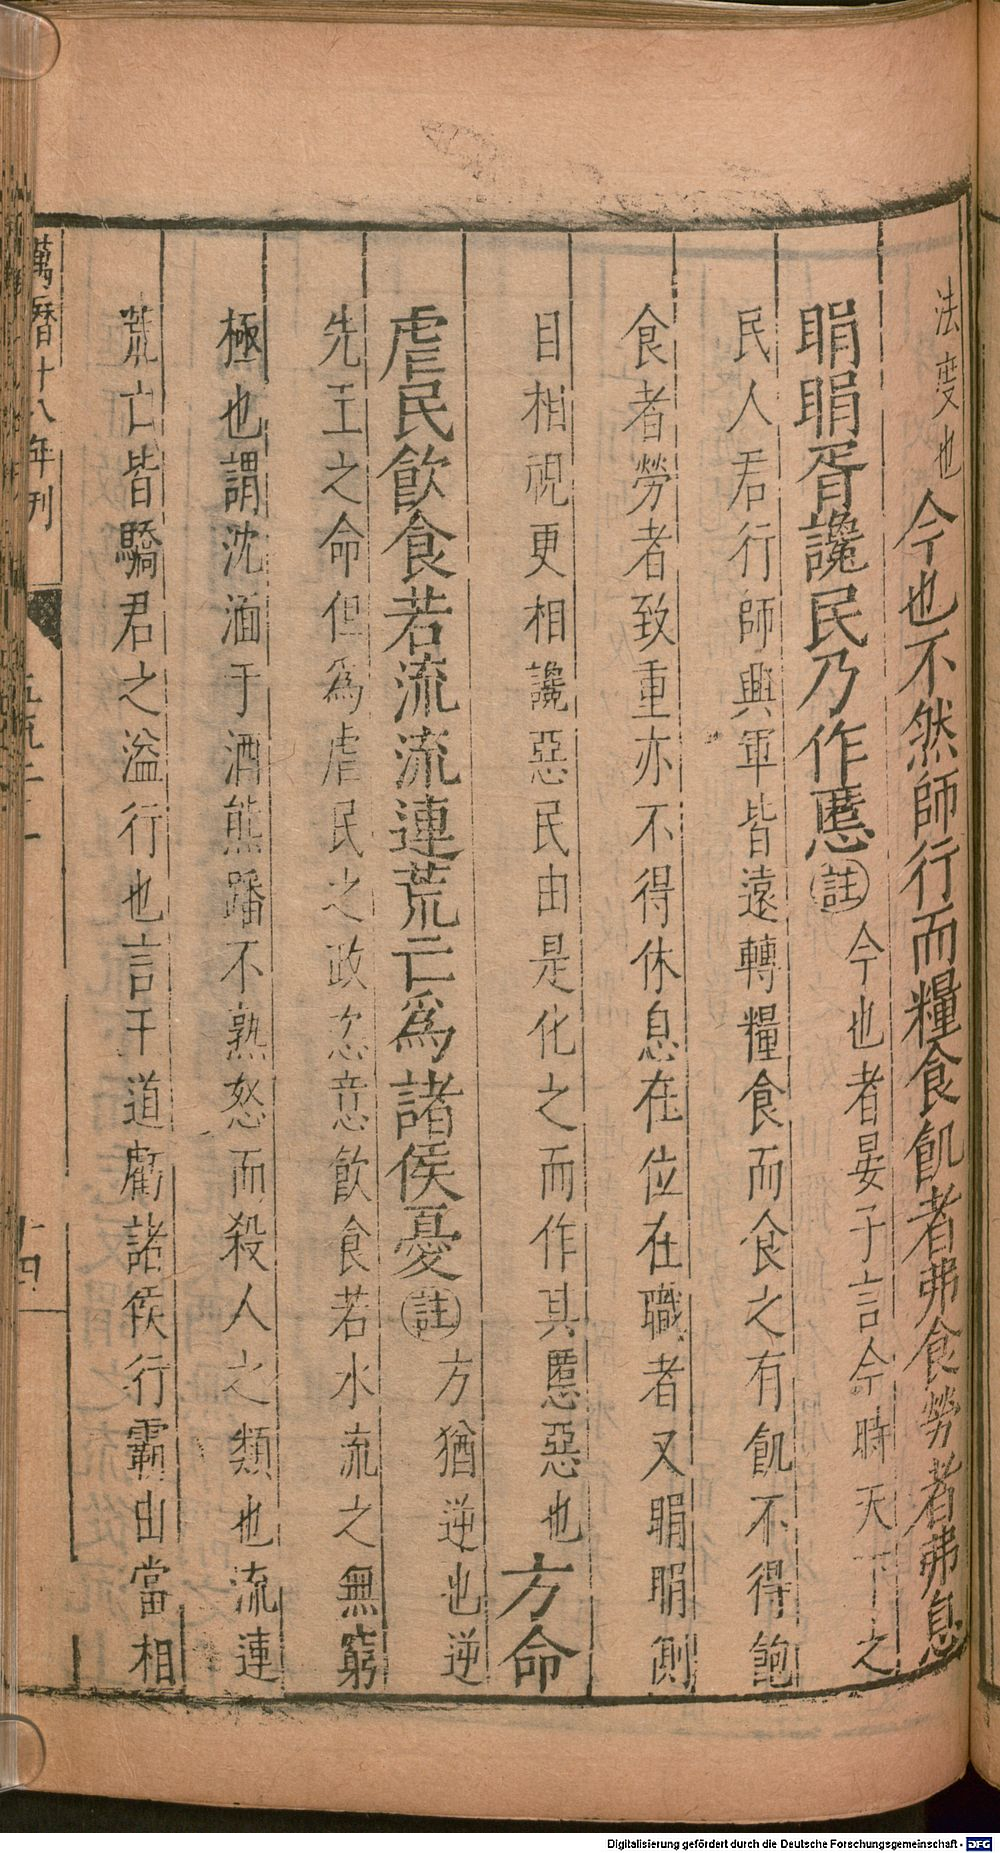 法度也今也不然師行而糧食飢者弗食勞者弗息
睊睊胥讒民乃作慝註今也者晏子言今時天下之
民人君行師興軍皆遠轉糧食而食之有飢不得飽
食者勞者致重亦不得休息在位在職者又睊睊側
目相視更相讒惡民由是化之而作其慝惡也方命
虐民飲食若流流連荒亡爲諸侯憂註方猶逆也逆
先王之命但爲虐民之政恣意飲食若水流之無窮
極也謂沈湎于酒熊蹯不熟怒而殺人之類也流連
荒亡皆驕君之溢行也言王道虧諸侯行霸由當相
萬曆十八年刊
十四
Digitalisierung gefördert durch die Deutsche Forschungsgemeinschaft - DFG